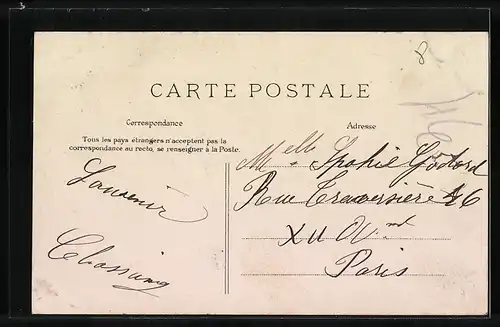 8
CARTE POSTALE
Correspondance
Adresse
Tous les pays étrangers n'acceptent pas la
correspondance au recto, se renseigner à la Poste.
Souvenir
Melle Godard
Rue Traversière 46
XII
Paris